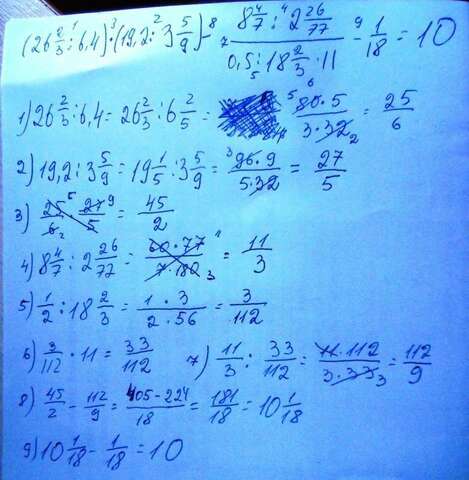 (26 2/3 : 6,4)·(19,2 : 3 5/9) - (8 4/7 : 2 26/77)/(0,5 : 18 2/3 · 11) - 1/18 = 10
1) 26 2/3 : 6,4 = 26 2/3 : 6 2/5 = (80·5)/(3·32) = 25/6
2) 19,2 : 3 5/9 = 19 1/5 : 3 5/9 = (96·9)/(5·32) = 27/5
3) 25/6 · 27/5 = 45/2
4) 8 4/7 : 2 26/77 = (60·77)/(7·180) = 11/3
5) 1/2 : 18 2/3 = (1·3)/(2·56) = 3/112
6) 3/112 · 11 = 33/112 7) 11/3 : 33/112 = (11·112)/(3·33) = 112/9
8) 45/2 - 112/9 = (405-224)/18 = 181/18 = 10 1/18
9) 10 1/18 - 1/18 = 10